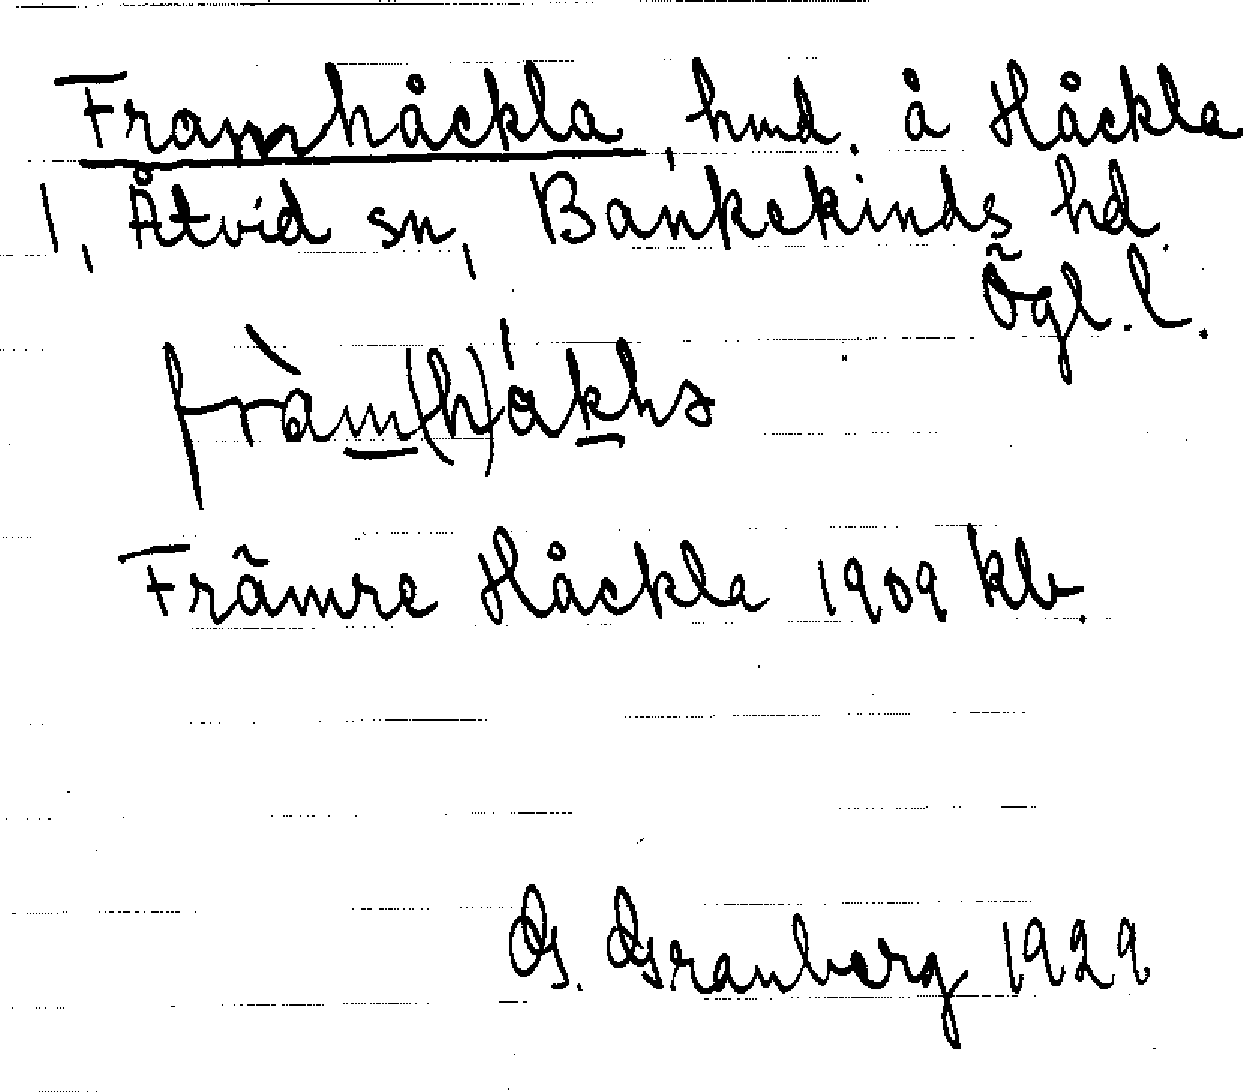 Framhåckla, hmd. å Håckla
1, Åtvid sn, Bankekinds hd.
Ögl. l.
fràm(h)åkla
Främre Håckla 1909 kb.
G. Granberg 1929